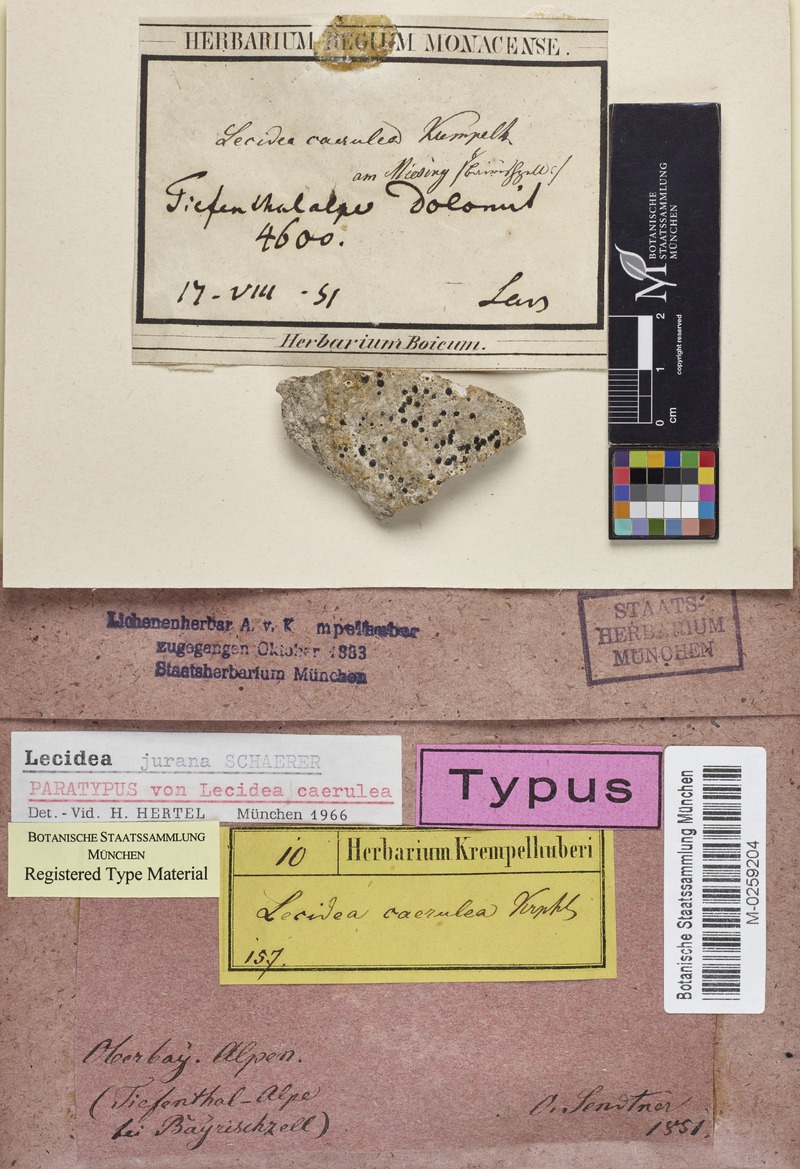 HERBARIUM REGIUM MONACENSE.
Lecidea caerulea Krempelh
am Miesing
Tiefenthalalpe Dolomit
4600.
17-VIII-51
Herbarium Boicum.
BOTANISCHE
STAATSSAMMLUNG
MÜNCHEN
copyright reserved
0 1 2
cm
Lichenenherbar A. v. K mpelhuber
zugegangen Oktober 1883
Staatsherbarium München
STAATS-
HERBARIUM
MÜNCHEN
Lecidea jurana SCHAERER
PARATYPUS von Lecidea caerulea
Det.-Vid. H. HERTEL München 1966
Typus
BOTANISCHE STAATSSAMMLUNG
MÜNCHEN
Registered Type Material
10 Herbarium Krempelhuberi
Lecidea caerulea Krphb
157.
Botanische Staatssammlung München
M-0259204
Oberbay. Alpen.
(Tiefenthal-Alpe
bei Bayrischzell)
O. Sendtner
1851.